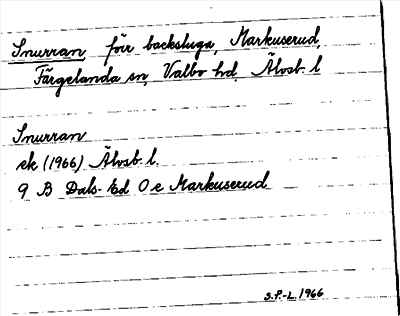 Snurran för backstuga, Markuserud,
Färgelanda sn, Valbo hd. Älvsb. l
Snurran
ek (1966) Älvsb. l.
9 B Dals-Ed O e Markuserud
S.F.-L. 1966